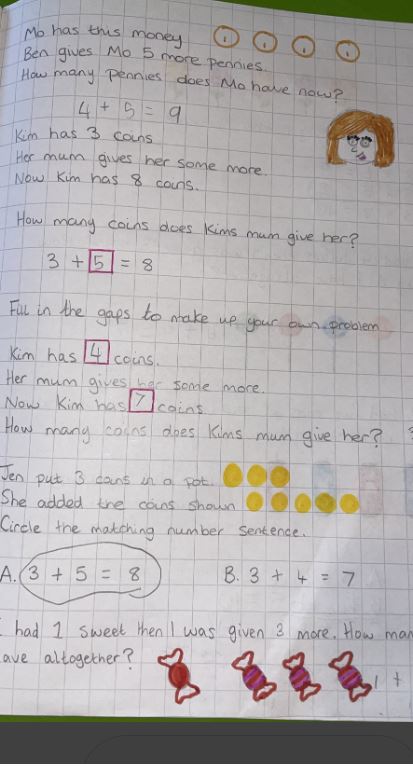 Mo has this money 1 1 1 1
Ben gives Mo 5 more pennies.
How many pennies does Mo have now?
4 + 5 = 9
Kim has 3 coins
Her mum gives her some more.
Now Kim has 8 coins.
How many coins does Kims mum give her?
3 + 5 = 8
Fill in the gaps to make up your own problem
Kim has 4 coins.
Her mum gives her some more.
Now Kim has 7 coins
How many coins does Kims mum give her?
Jen put 3 coins in a pot.
She added the coins shown
Circle the matching number sentence.
A. 3 + 5 = 8 B. 3 + 4 = 7
I had 1 sweet then I was given 3 more. How man
ave altogether? 1 +